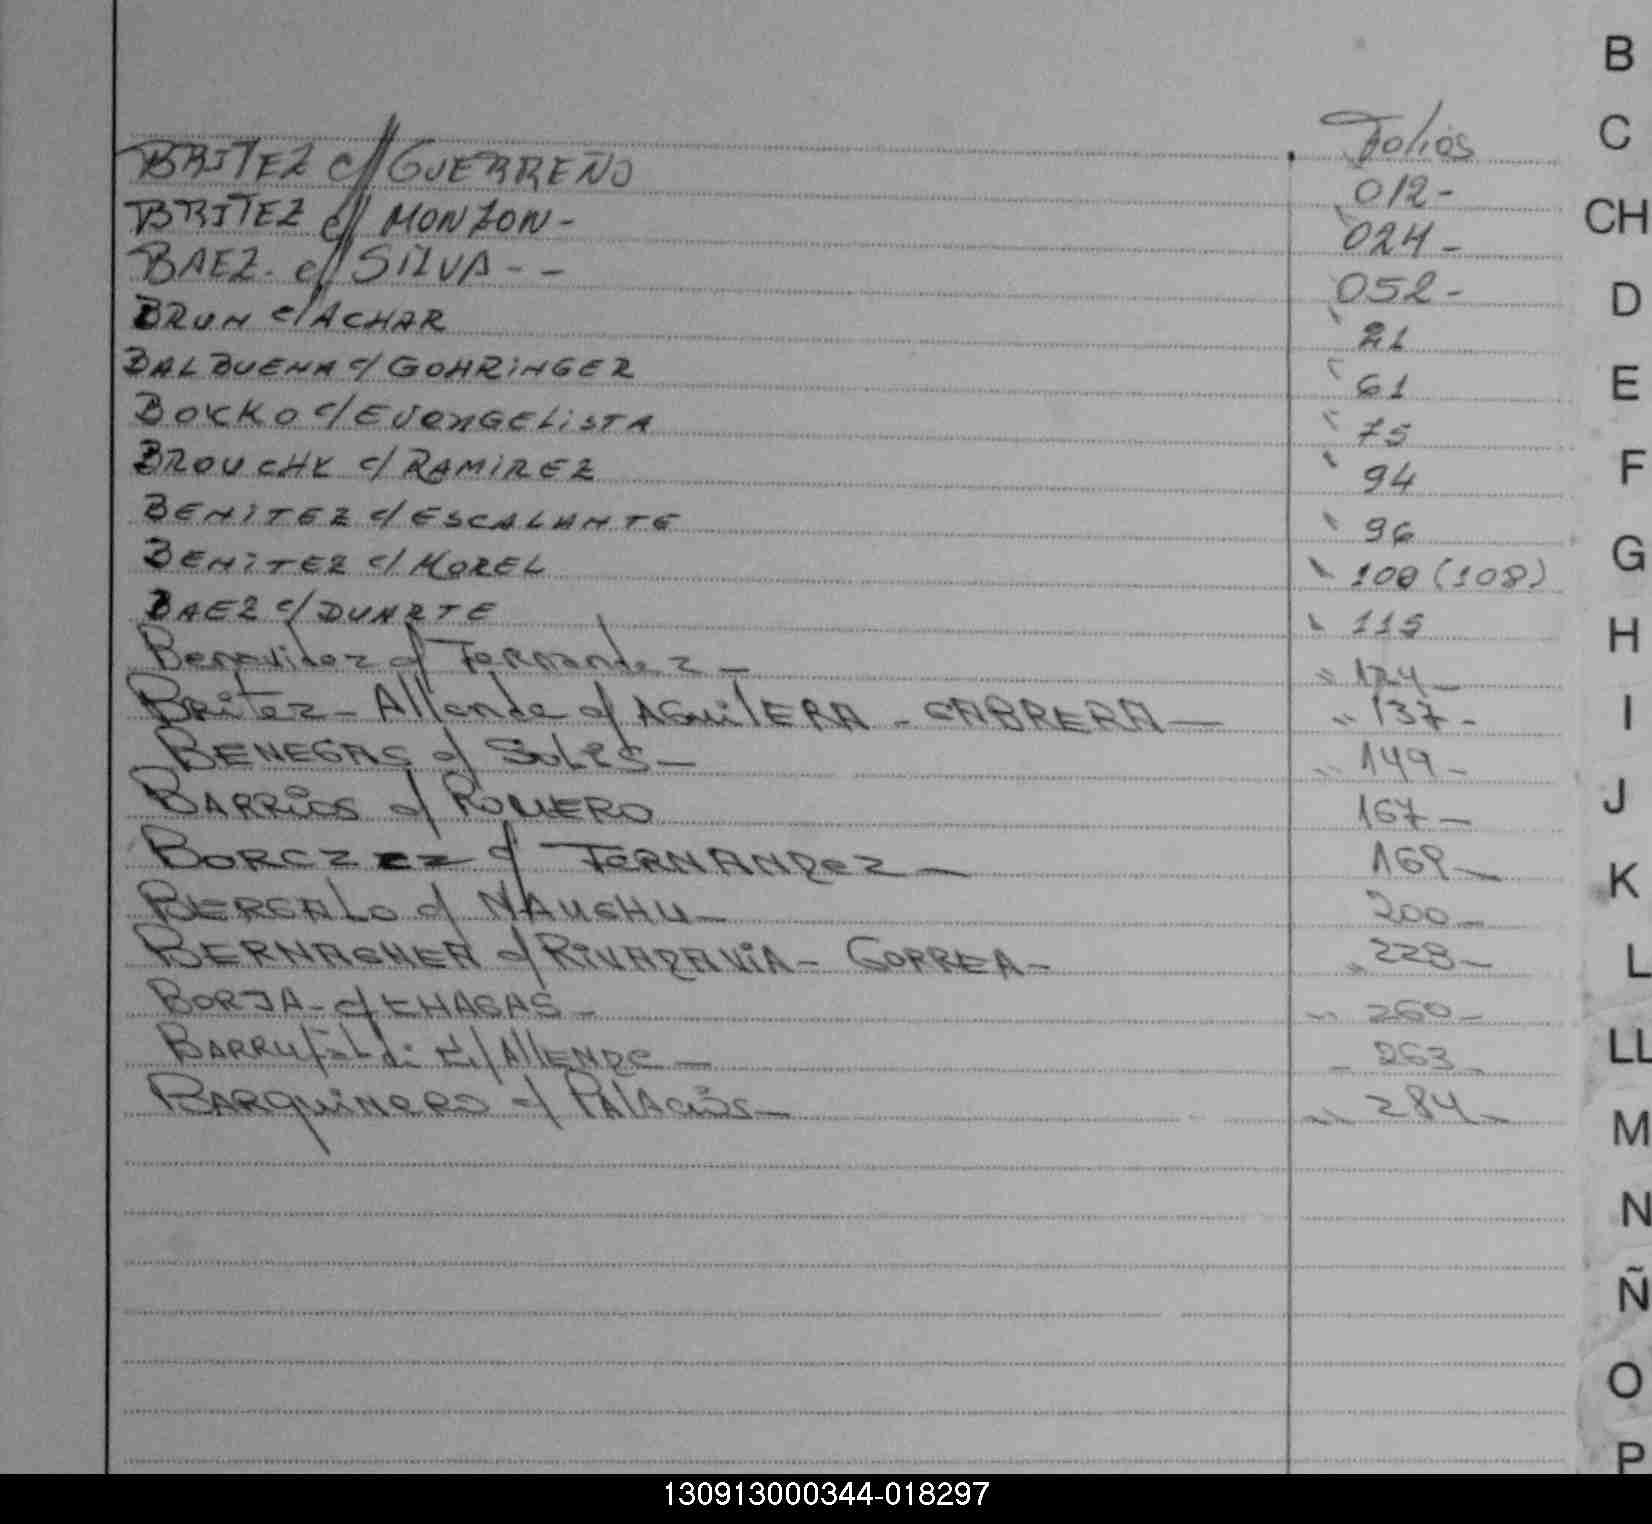 B
Folios
C
BRITEZ c// GUERREÑO 012-
BRITEZ c// MONZON - 024-
CH
BAEZ - c// SILVA - - 052-
D
BRUN c/ ACHAR 21
BALBUENA c/ GOHRINGER 61
E
BOKKO c/ EVANGELISTA 75
BROUCHK c/ RAMIREZ 94
F
BENITEZ c/ ESCALANTE 96
BENITEZ c/ MOREL 100 (108)
G
BAEZ c/ DUARTE 115
H
Benavidez c/ Fernandez - 124-
Britez - Allende c/ AGUILERA - CABRERA - 137-
I
BENEGAS c/ SOLIS - 149-
BARRIOS c/ ROMERO 167-
J
c/ FERNANDEZ - 169-
K
c/ 200-
c/ RIVADAVIA - CORREA - 228-
L
BORJA - c/ CHAGAS - 260-
BARRUFALDI c/ ALLENDE - 263-
LL
BARQUINERO c/ PALACIOS - 284-
M
N
Ñ
O
P
130913000344-018297